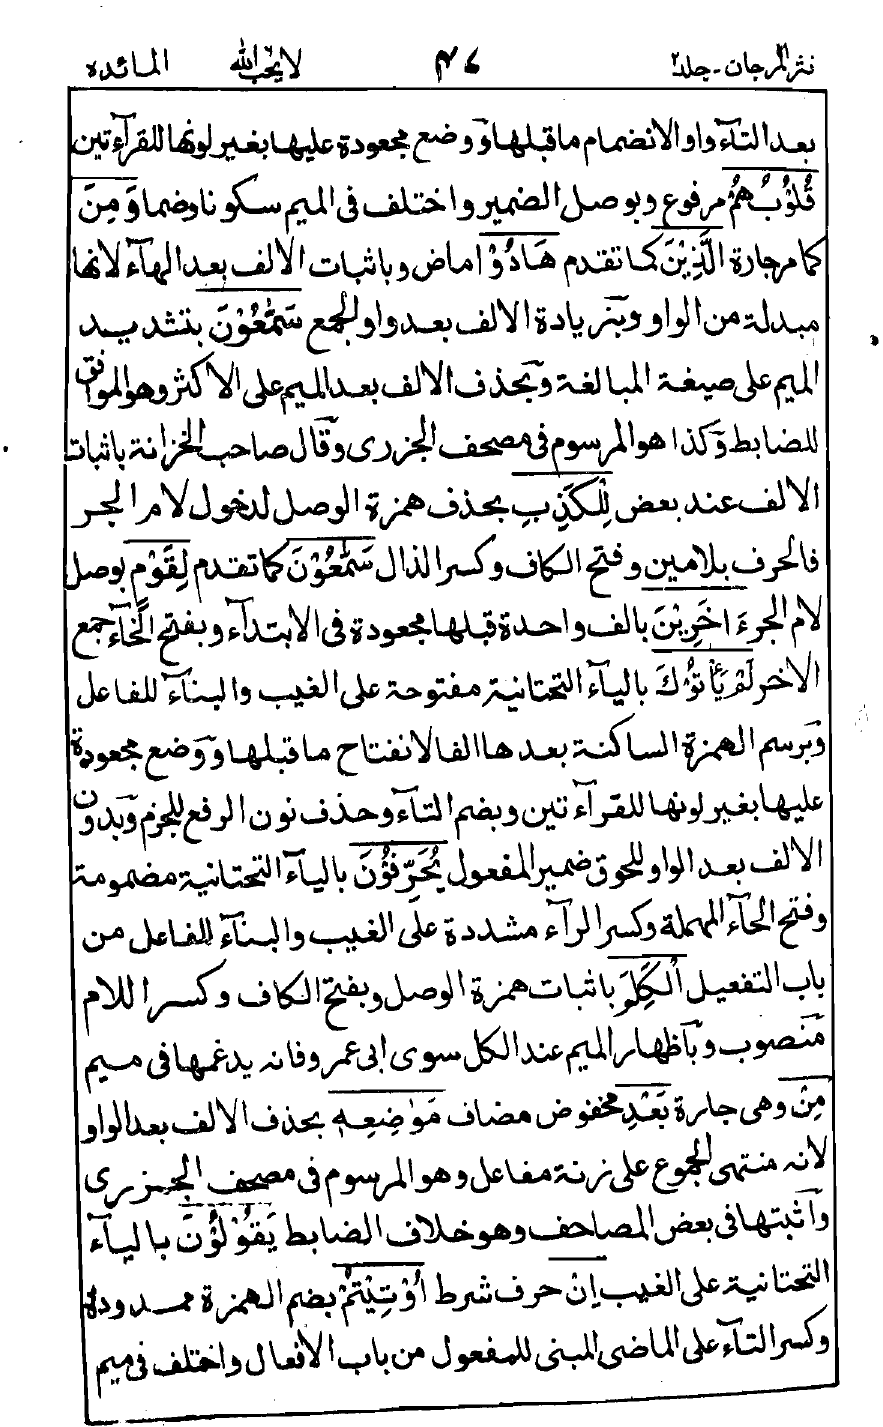 نثر المرجان - جلد ٢ ٤٧ لا يحب الله المائدة
بعد التآء واوا لانضمام ما قبلها وَوضع مجعودة عليها بغير لونها للقرآءتين
قُلُوْبُهُمْ مرفوع وبوصل الضمير واختلف فى الميم سكونا وضما وَمِنَ
كما مر جارة الَّذِيْنَ كما تقدم هَادُوْا ماض وباثبات الالف بعد الهآء لانها
مبدلة من الواو وبزيادة الالف بعد واو الجمع سَمّٰعُوْنَ بتشديد
الميم على صيغة المبالغة وبحذف الالف بعد الميم على الاكثر وهو الموافق
للضابط وَكذا هو المرسوم فى مصحف الجزرى وَقال صاحب الخزانة باثبات
الالف عند بعض لِلْكَذِبِ بحذف همزة الوصل لدخول لام الجر
فالحرف بلامين وفتح الكاف وكسر الذال سَمّٰعُوْنَ كما تقدم لِقَوْمٍ بوصل
لام الجر ءَاخَرِيْنَ بالف واحدة قبلها مجعودة فى الابتدآء وبفتح الخآء جمع
الاخر لَمْ يَأْتُوْكَ باليآء التحتانية مفتوحة على الغيب والبنآء للفاعل
وَبرسم الهمزة الساكنة بعدها الفا لانفتاح ما قبلها وَوضع مجعودة
عليها بغير لونها للقرآءتين وبضم التآء وحذف نون الرفع للجزم وَبدون
الالف بعد الواو للحوق ضمير المفعول يُحَرِّفُوْنَ باليآء التحتانية مضمومة
وفتح الحآء المهملة وكسر الرآء مشددة على الغيب والبنآء للفاعل من
باب التفعيل اَلْكَلِمَ باثبات همزة الوصل وبفتح الكاف وكسر اللام
منصوب وبآظهار الميم عند الكل سوى ابى عمرو فانه يدغمها فى ميم
مِنْ وهى جارة بَعْدِ مخفوض مضاف مَوَٰضِعِهٖ بحذف الالف بعد الواو
لانه منتهى الجموع على زنة مفاعل وهو المرسوم فى مصحف الجزرى
وآثبتها فى بعض المصاحف وهو خلاف الضابط يَقُوْلُوْنَ باليآء
التحتانية على الغيب اِنْ حرف شرط اُوْتِيْتُمْ بضم الهمزة ممدودة
وكسر التآء على الماضى المبنى للمفعول من باب الافعال واختلف فى ميم